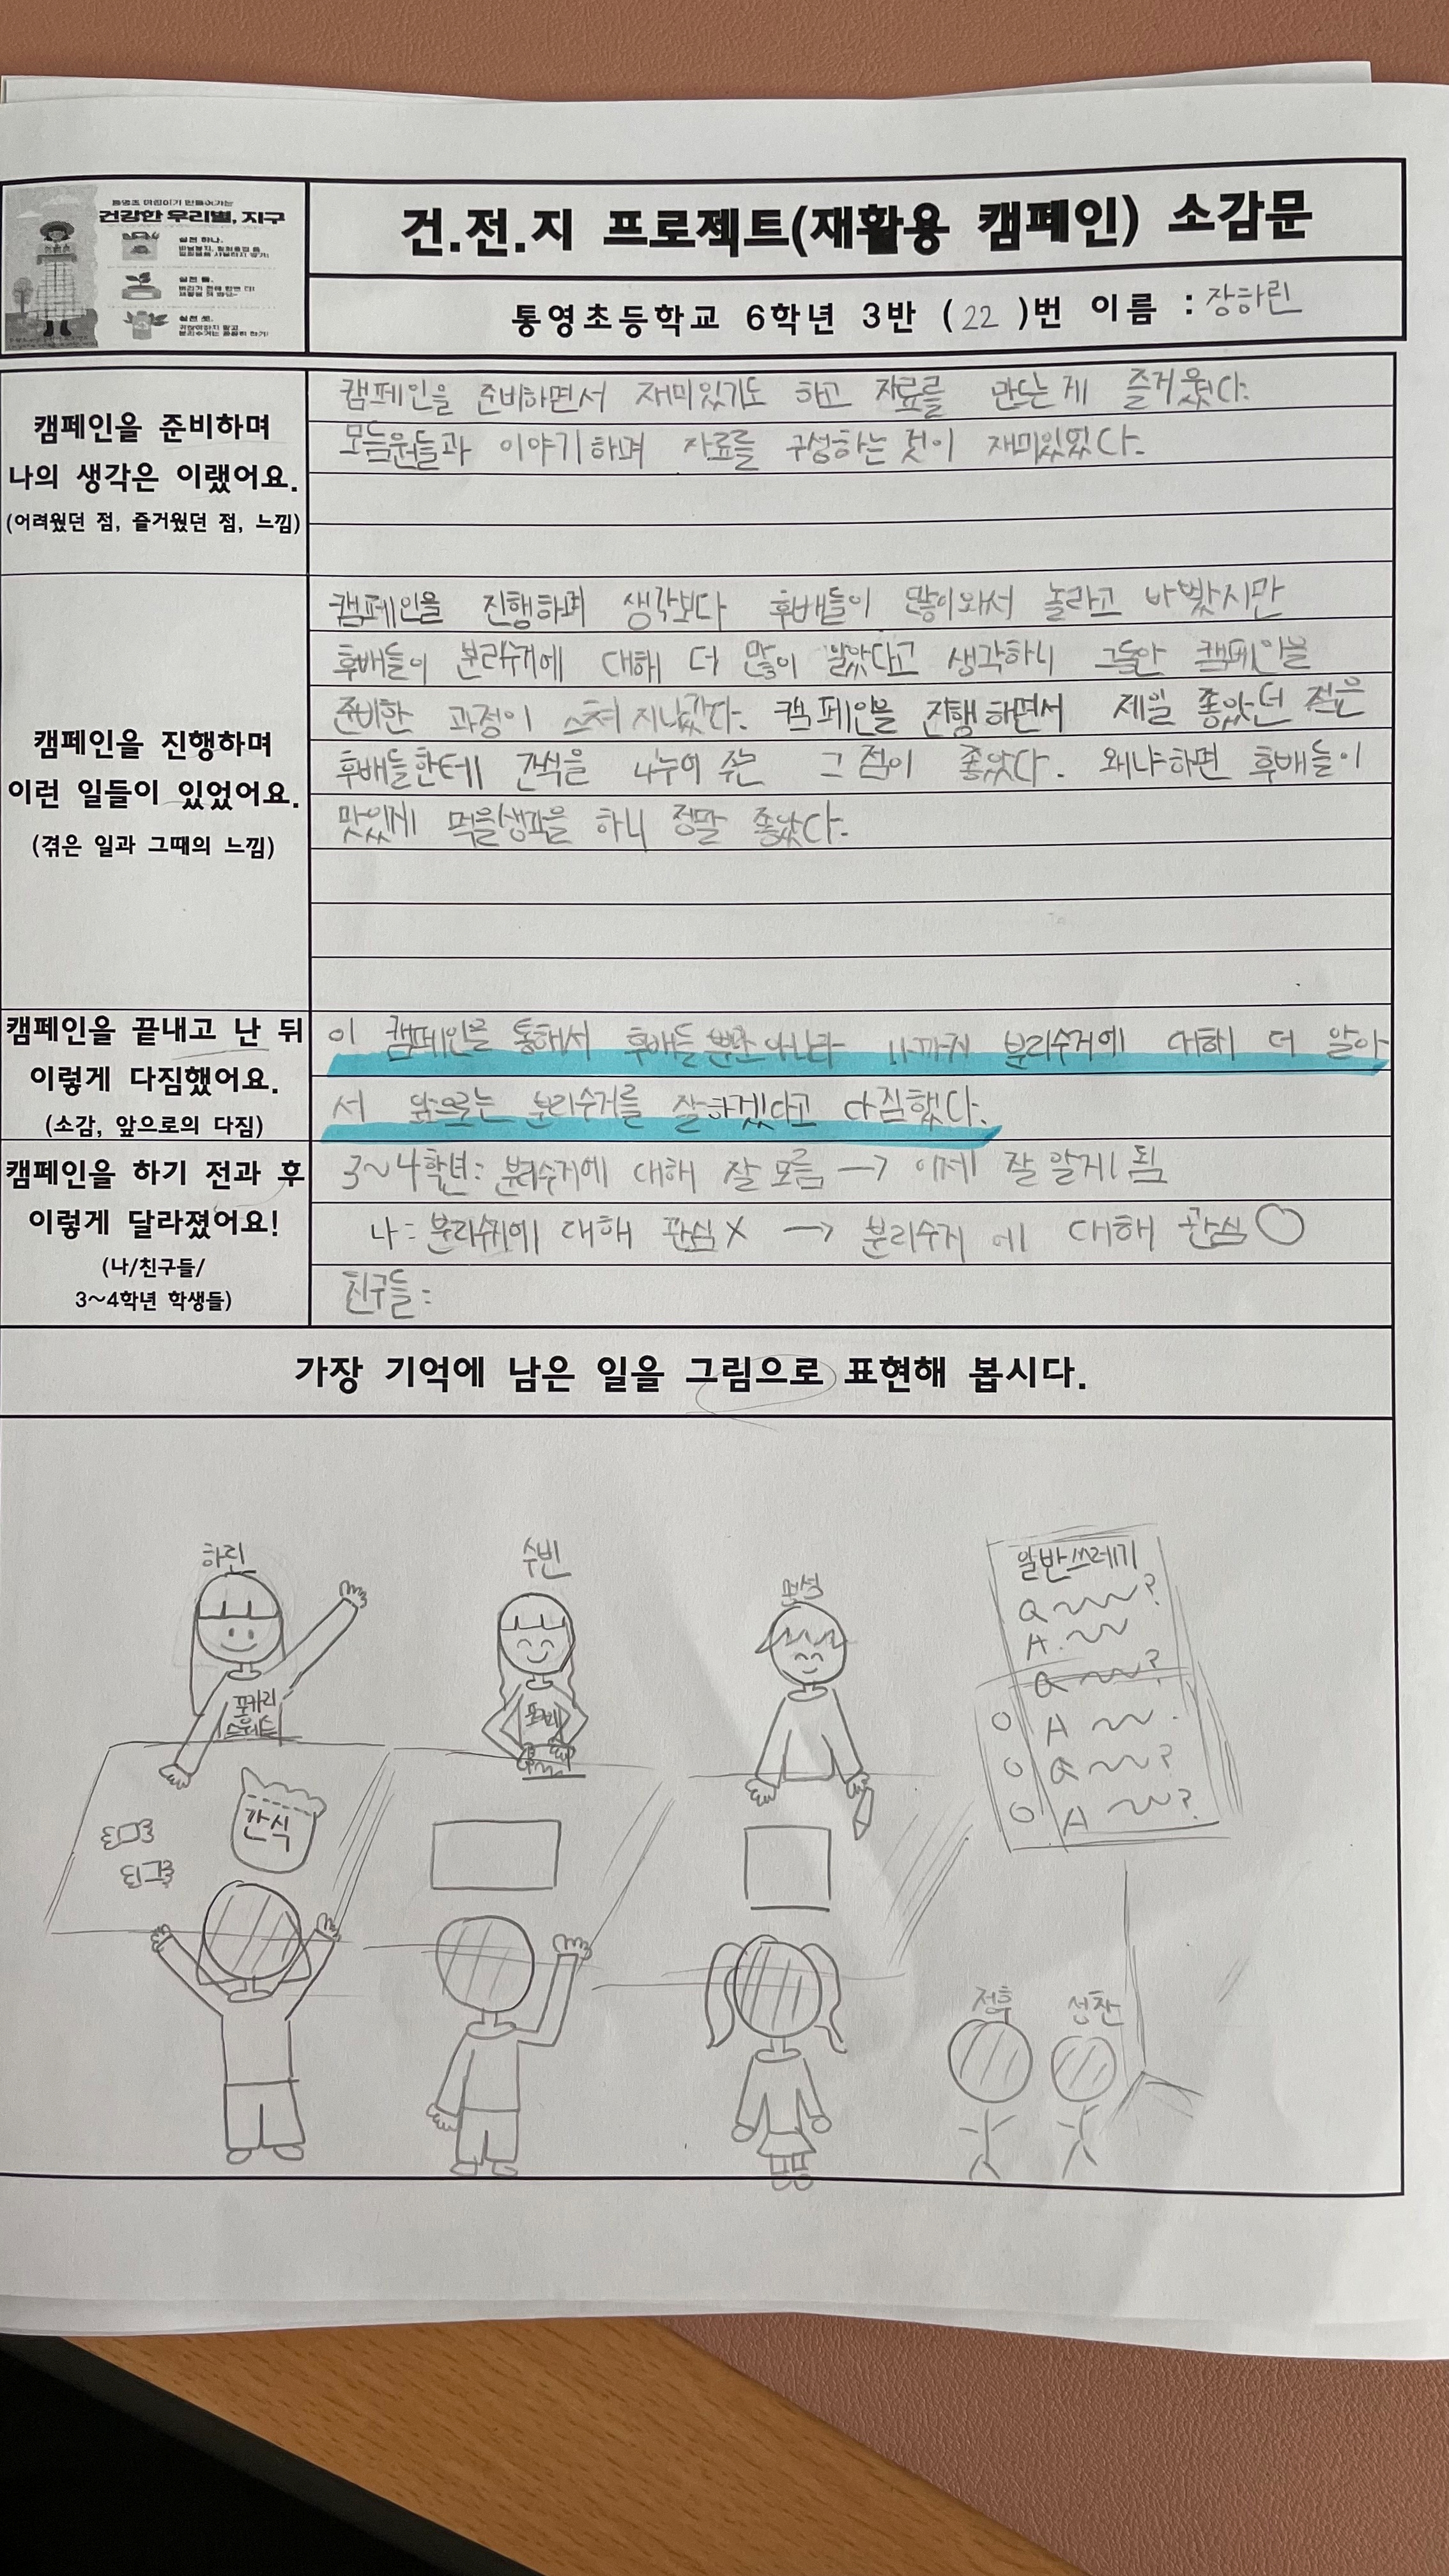 통영초 어린이가 만들어가는
건강한 우리별, 지구
실천 하나.
실천 둘.
실천 셋.
건.전.지 프로젝트(재활용 캠페인) 소감문
통영초등학교 6학년 3반 (22)번 이름 : 장하린
캠페인을 준비하며
나의 생각은 이랬어요.
(어려웠던 점, 즐거웠던 점, 느낌)
캠페인을 준비하면서 재미있기도 하고 자료를 만드는게 즐거웠다.
모둠원들과 이야기하며 자료를 구성하는 것이 재미있었다.
캠페인을 진행하며
이런 일들이 있었어요.
(겪은 일과 그때의 느낌)
캠페인을 진행하며 생각보다 후배들이 많이와서 놀라고 바빴지만
후배들이 분리수거에 대해 더 많이 알았다고 생각하니 그동안 캠페인을
준비한 과정이 스쳐 지나갔다. 캠페인을 진행하면서 제일 좋았던 점은
후배들한테 간식을 나누어 주는 그 점이 좋았다. 왜냐하면 후배들이
맛있게 먹을생각을 하니 정말 좋았다.
캠페인을 끝내고 난 뒤
이렇게 다짐했어요.
(소감, 앞으로의 다짐)
이 캠페인을 통해서 후배들 뿐만 아니라 나까지 분리수거에 대해 더 알아
서 앞으로는 분리수거를 잘하겠다고 다짐했다.
캠페인을 하기 전과 후
이렇게 달라졌어요!
(나/친구들/
3~4학년 학생들)
3~4학년: 분리수거에 대해 잘 모름 → 이제 잘 알게 됨
나: 분리수거에 대해 관심X → 분리수거에 대해 관심O
친구들:
가장 기억에 남은 일을 그림으로 표현해 봅시다.
하린
수빈
포카리
스웨트
간식
일반쓰레기
Q ?
A.
Q ?
A .
Q ?
A ?
정후
성찬